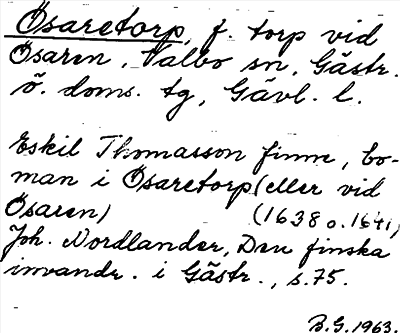 Ösaretorp, f. torp vid
Ösaren, Valbo sn, Gästr.
ö. doms. tg, Gävl. l.
Eskil Thomasson finne, bo-
man i Ösaretorp (eller vid
Ösaren) (1638 o. 1641)
Joh. Nordlander, Den finska
invandr. i Gästr., s. 75.
B.G. 1963.